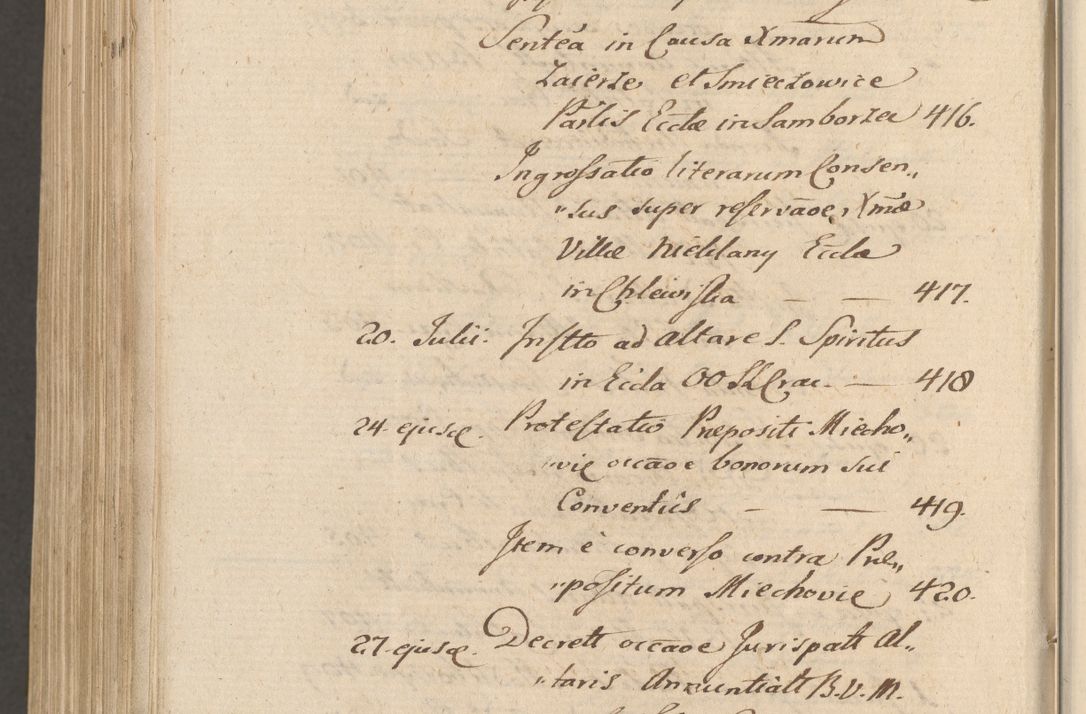 Sentēa in Causa Xmarum
Zaierze et Smieczowice
Partis Eccłæ in Samborzec 416.
Ingrossatio literarum Consen„
„sus super reservaōe Xmæ
Villæ Nieklany Eccłæ
in Chlewiska — — 417.
20. Julii. Instto ad Altare S. Spiritus
in Eccła OO SS Crac. — 418
24 ejusd. Protestatio Præpositi Miecho„
„vię occāoe bonorum sui
Conventûs — — 419.
Item è converso contra Præ„
„positum Miechovię 420.
27. ejusd. Decrett occāoe Jurispatt Al„
„taris Annuntiatt B.V.M.